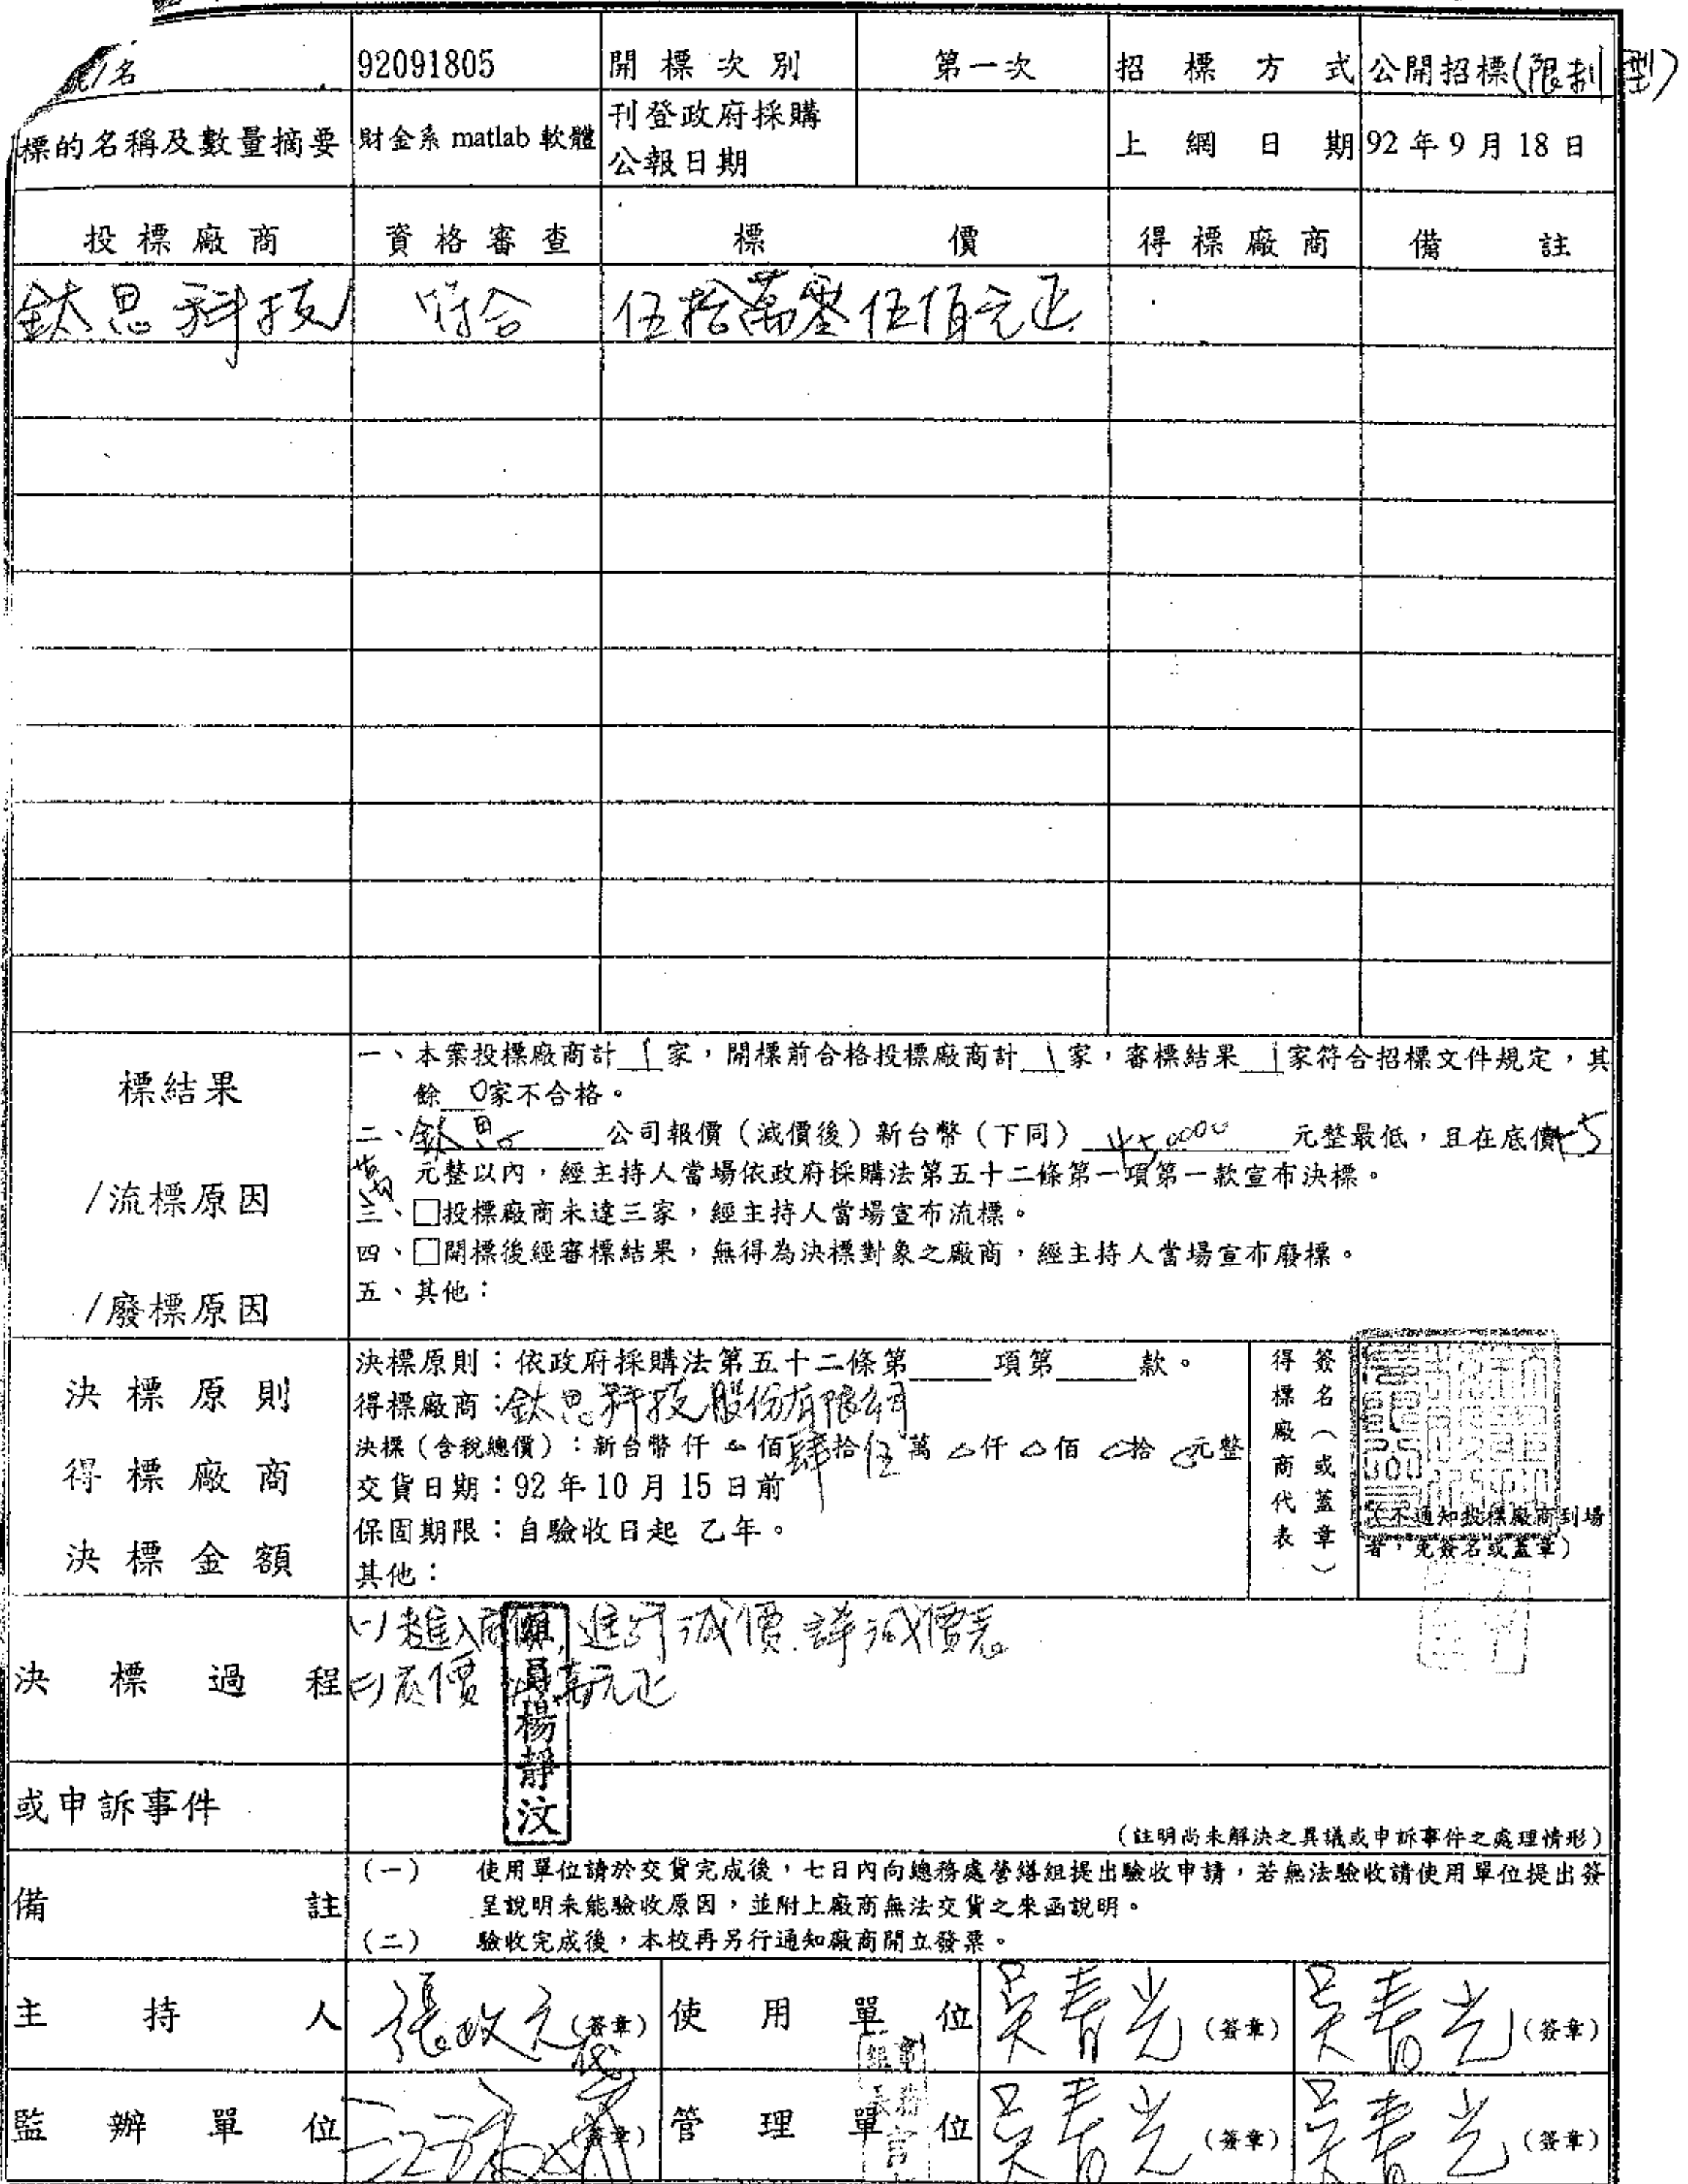 號/名 92091805 開標次別 第一次 招標方式 公開招標(限制型)
標的名稱及數量摘要 財金系 matlab 軟體 刊登政府採購公報日期 上網日期 92年9月18日
投標廠商 資格審查 標價 得標廠商 備註
鈦思科技 符合 伍拾萬零伍佰元正
標結果
/流標原因
/廢標原因
一、本案投標廠商計 1 家,開標前合格投標廠商計 1 家,審標結果 1 家符合招標文件規定,其
餘 0 家不合格。
二、鈦思 公司報價(減價後)新台幣(下同) 450000 元整最低,且在底價 45
萬 元整以內,經主持人當場依政府採購法第五十二條第一項第一款宣布決標。
三、□投標廠商未達三家,經主持人當場宣布流標。
四、□開標後經審標結果,無得為決標對象之廠商,經主持人當場宣布廢標。
五、其他:
決標原則
得標廠商
決標金額
決標原則:依政府採購法第五十二條第 項第 款。
得標廠商:鈦思科技股份有限公司
決標(含稅總價):新台幣 仟 佰 肆 拾 伍 萬 仟 佰 拾 元整
交貨日期:92 年 10 月 15 日前
保固期限:自驗收日起 乙年。
其他:
得標廠商代表
簽名(或蓋章)
(不通知投標廠商到場
者,免簽名或蓋章)
決標過程
(一)未進入底價,進行減價.詳減價表
(二)底價 萬元正
員楊靜汶
或申訴事件
(註明尚未解決之異議或申訴事件之處理情形)
備註
(一) 使用單位請於交貨完成後,七日內向總務處營繕組提出驗收申請,若無法驗收請使用單位提出簽
呈說明未能驗收原因,並附上廠商無法交貨之來函說明。
(二) 驗收完成後,本校再另行通知廠商開立發票。
主持人 張政文 (簽章) 使用單位 吳春光 (簽章) 吳春光 (簽章)
監辦單位 (簽章) 管理單位 吳春光 (簽章) 吳春光 (簽章)